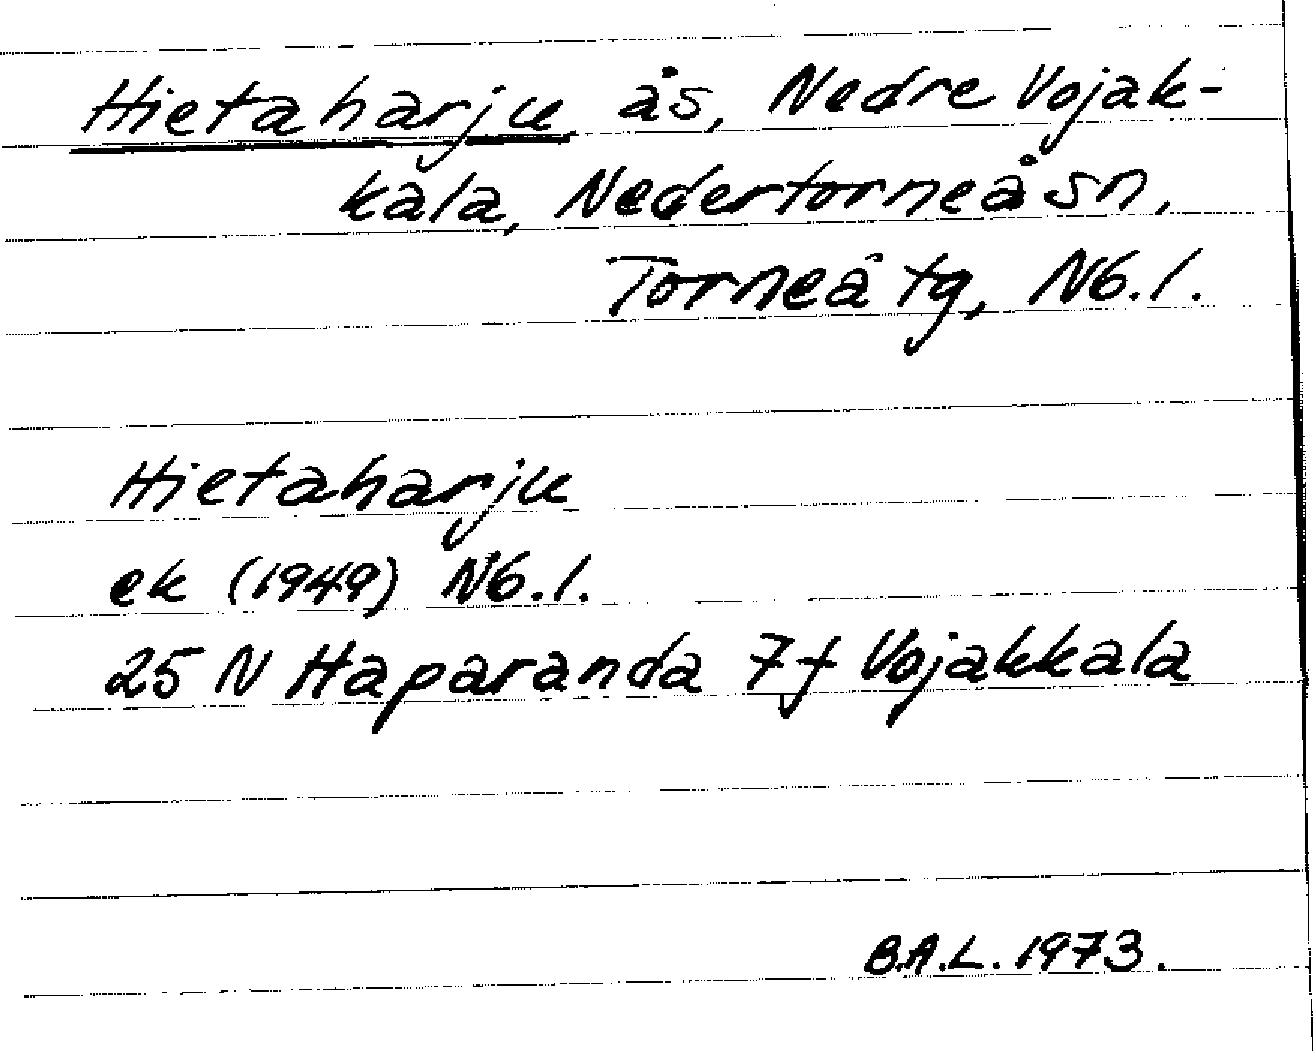 Hietaharju ås, Nedre Vojak-
kala, Nedertorneå sn,
Torneå tg, Nb.l.
Hietaharju
ek (1949) Nb.l.
25 N Haparanda 7f Vojakkala
B.A.L. 1973.